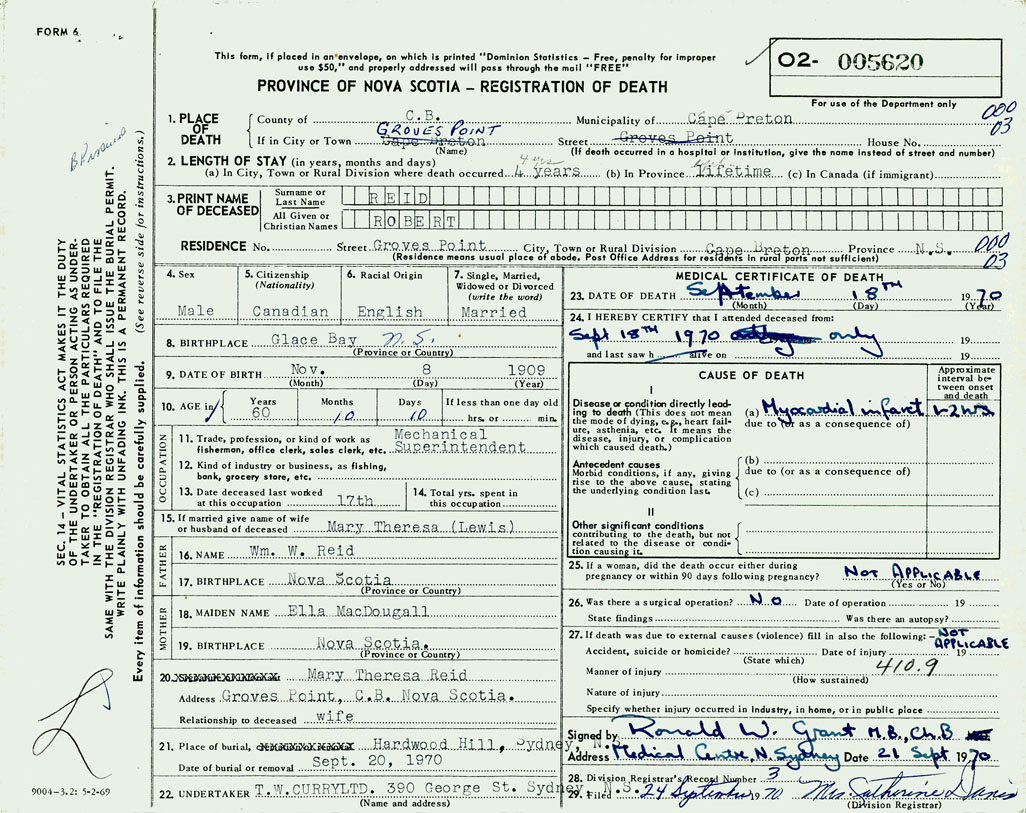 FORM 6
This form, if placed in an envelope, on which is printed "Dominion Statistics – Free, penalty for improper
use $50," and properly addressed will pass through the mail "FREE"
02- 005620
For use of the Department only
PROVINCE OF NOVA SCOTIA – REGISTRATION OF DEATH
000
03
1. PLACE OF DEATH
County of C.B. Municipality of Cape Breton
GROVES POINT
If in City or Town Cape Breton Street Groves Point House No.
(Name) (If death occurred in a hospital or institution, give the name instead of street and number)
2. LENGTH OF STAY (in years, months and days) 4 yrs
(a) In City, Town or Rural Division where death occurred 4 years (b) In Province lifetime (c) In Canada (if immigrant)
3. PRINT NAME OF DECEASED
Surname or Last Name REID
All Given or Christian Names ROBERT
RESIDENCE No. Street Groves Point City, Town or Rural Division Cape Breton Province N.S. 000
(Residence means usual place of abode. Post Office Address for residents in rural parts not sufficient) 03
4. Sex Male
5. Citizenship (Nationality) Canadian
6. Racial Origin English
7. Single, Married, Widowed or Divorced (write the word) Married
8. BIRTHPLACE Glace Bay N.S.
(Province or Country)
9. DATE OF BIRTH Nov. 8 1909
(Month) (Day) (Year)
10. AGE in Years 60 Months 10 Days 10 If less than one day old hrs. or min.
OCCUPATION
11. Trade, profession, or kind of work as fisherman, office clerk, sales clerk, etc. Mechanical Superintendent
12. Kind of industry or business, as fishing, bank, grocery store, etc.
13. Date deceased last worked at this occupation 17th
14. Total yrs. spent in this occupation
15. If married give name of wife or husband of deceased Mary Theresa (Lewis)
FATHER
16. NAME Wm. W. Reid
17. BIRTHPLACE Nova Scotia
(Province or Country)
MOTHER
18. MAIDEN NAME Ella MacDougall
19. BIRTHPLACE Nova Scotia.
(Province or Country)
20. Mary Theresa Reid
Address Groves Point, C.B. Nova Scotia.
Relationship to deceased wife
21. Place of burial, Hardwood Hill, Sydney, N.
Date of burial or removal Sept. 20, 1970
22. UNDERTAKER T.W.CURRYLTD. 390 George St. Sydney, N.S.
(Name and address)
MEDICAL CERTIFICATE OF DEATH
23. DATE OF DEATH September 18TH 1970
(Month) (Day) (Year)
24. I HEREBY CERTIFY that I attended deceased from:
Sept 18TH 1970 only 19
and last saw h alive on 19
CAUSE OF DEATH
Approximate interval between onset and death
I
Disease or condition directly leading to death (This does not mean the mode of dying, e.g., heart failure, asthenia, etc. It means the disease, injury, or complication which caused death.)
(a) Myocardial infarct 1-2 hrs
due to (or as a consequence of)
Antecedent causes
Morbid conditions, if any, giving rise to the above cause, stating the underlying condition last.
(b)
due to (or as a consequence of)
(c)
II
Other significant conditions
contributing to the death, but not related to the disease or condition causing it.
25. If a woman, did the death occur either during pregnancy or within 90 days following pregnancy? NOT APPLICABLE
(Yes or No)
26. Was there a surgical operation? NO Date of operation 19
State findings Was there an autopsy?
27. If death was due to external causes (violence) fill in also the following:- NOT APPLICABLE
Accident, suicide or homicide? Date of injury 19
(State which)
Manner of injury 410.9
(How sustained)
Nature of injury
Specify whether injury occurred in industry, in home, or in public place
Signed by Ronald W. Grant M.B., Ch.B
Address Medical Centre, N. Sydney Date 21 Sept 1970
28. Division Registrar's Record Number 3
29. Filed 24 September 1970 Mrs Catherine Davis
(Division Registrar)
SEC. 14 – VITAL STATISTICS ACT MAKES IT THE DUTY
OF THE UNDERTAKER OR PERSON ACTING AS UNDER-
TAKER TO OBTAIN ALL THE PARTICULARS REQUIRED
IN THE "REGISTRATION OF DEATH" AND TO FILE THE
SAME WITH THE DIVISION REGISTRAR WHO SHALL ISSUE THE BURIAL PERMIT.
WRITE PLAINLY WITH UNFADING INK. THIS IS A PERMANENT RECORD.
Every item of information should be carefully supplied. (See reverse side for instructions.)
9004-3.2: 5-2-69